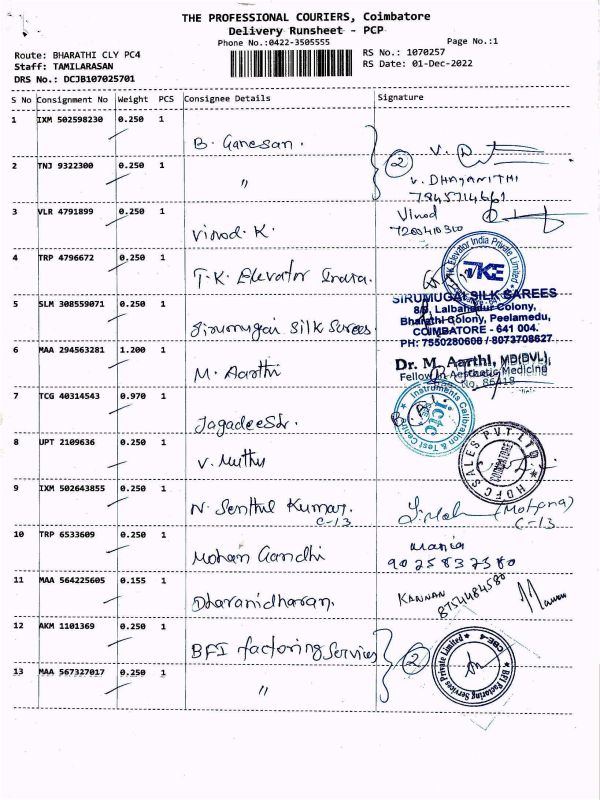 THE PROFESSIONAL COURIERS, Coimbatore
Delivery Runsheet - PCP
Phone No.:0422-3505555
Page No.:1
Route: BHARATHI CLY PC4
RS No.: 1070257
Staff: TAMILARASAN
RS Date: 01-Dec-2022
DRS No.: DCJB107025701
S No Consignment No Weight PCS Consignee Details Signature
1 IXM 502598230 0.250 1
B. Ganesan.
2
2 TNJ 9322300 0.250 1
〃
V. DHAYANITHI
3 VLR 4791899 0.250 1
Vinod
7200410300
Vinod. K.
4 TRP 4796672 0.250 1
T.K. Elevator India.
TK Elevator India Private Limited
TKE
5 SLM 308559071 0.250 1
Sirumugai Silk Sarees.
SIRUMUGAI SILK SAREES
8/9, Lalbahadur Colony,
Bharathi Colony, Peelamedu,
COIMBATORE - 641 004.
PH: 7550280608 / 8073708627
6 MAA 294563281 1.200 1
M. Aarthi
Dr. M. Aarthi, MD(DVL),
Fellow in Aesthetic Medicine
No. 86418
7 TCG 40314543 0.970 1
Jagadeesh.
Instruments Calibration & Test Centre
ictc
8 UPT 2109636 0.250 1
V. Muthu
HDFC SALES PVT LTD
COIMBATORE
9 IXM 502643855 0.250 1
N. Senthil Kumar.
C-13
(Mohana)
C-13
10 TRP 6533609 0.250 1
Mohan Gandhi
Maria
9025837580
11 MAA 564225605 0.155 1
Dharanidharan.
KANNAN
12 AKM 1101369 0.250 1
BFI factoring Services
2
BFI Factoring Services Private Limited
CBE-4
13 MAA 567327017 0.250 1
〃